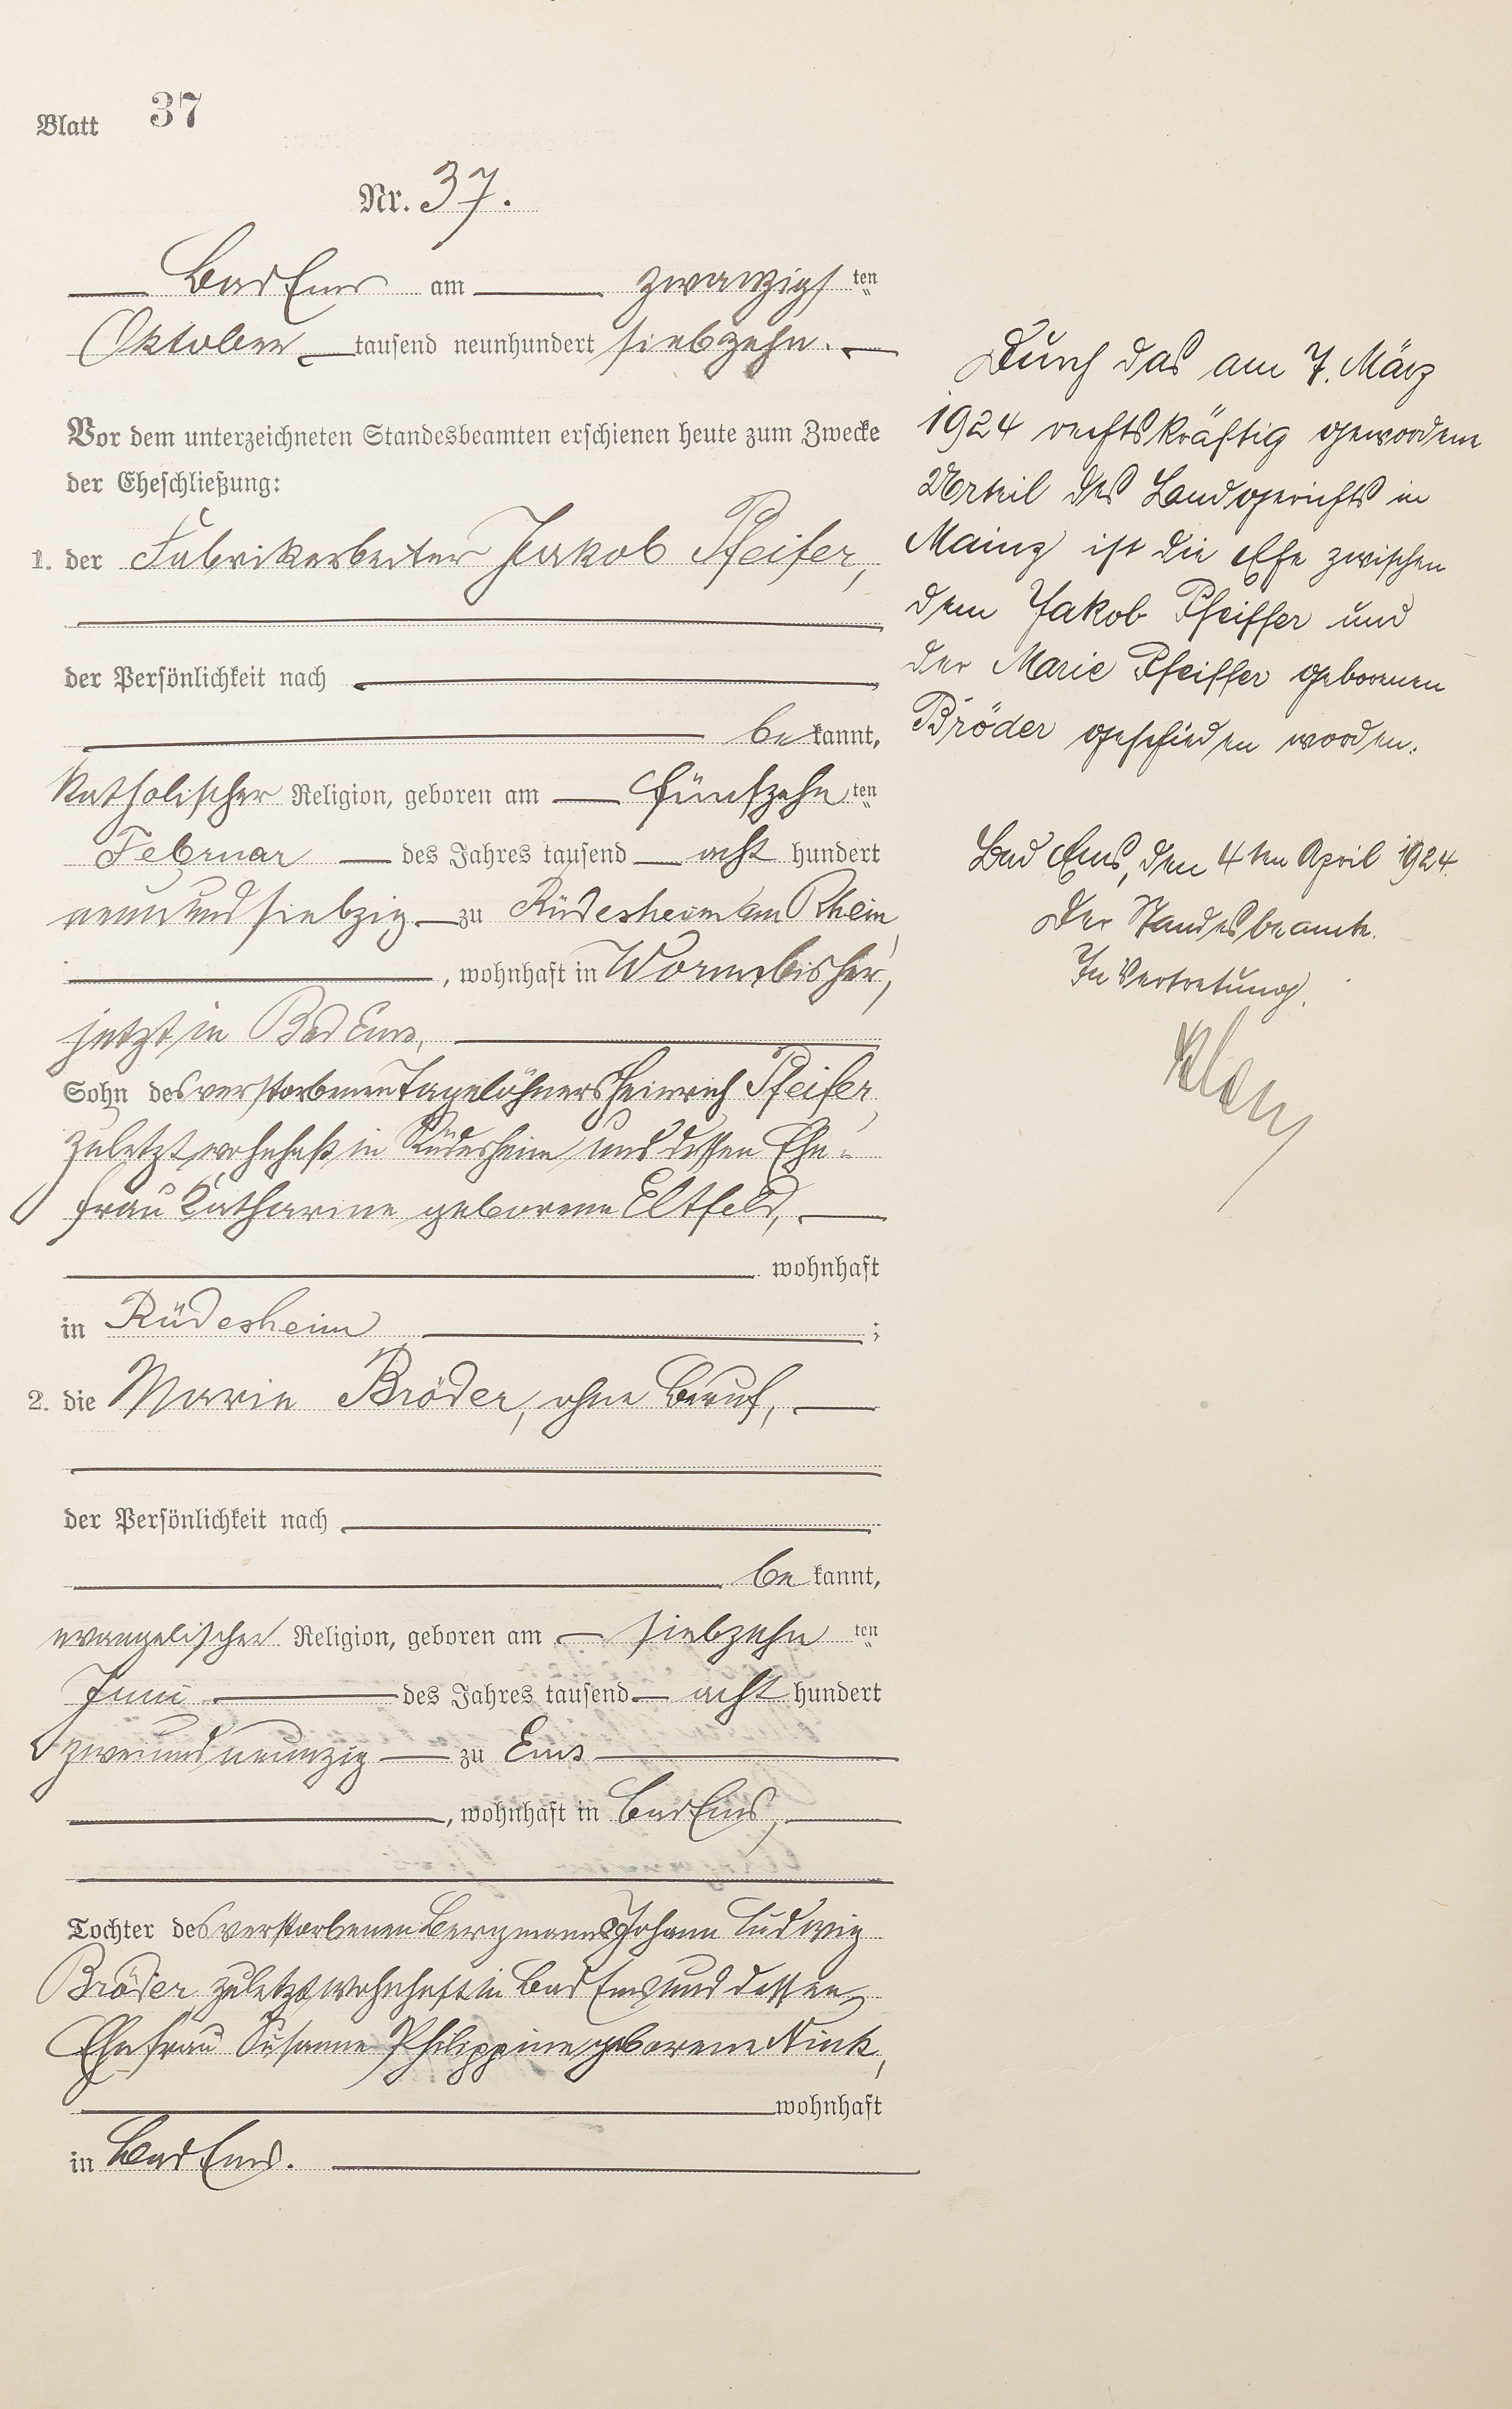 Blatt 37
Nr. 37.
Bad Ems am zwanzigsten
Oktober tausend neunhundert siebzehn.
Vor dem unterzeichneten Standesbeamten erschienen heute zum Zwecke
der Eheschließung:
1. der Fabrikarbeiter Jakob Pfeifer,
der Persönlichkeit nach
bekannt,
katholischer Religion, geboren am fünfzehnten
Februar des Jahres tausend acht hundert
neunundsiebzig zu Rüdesheim am Rhein,
, wohnhaft in Worms bisher,
jetzt in Bad Ems,
Sohn des verstorbenen Tagelöhners Heinrich Pfeifer,
zuletzt wohnhaft in Rüdesheim und dessen Ehe-
frau Katharine geborene Eltfeld,
wohnhaft
in Rüdesheim ;
2. die Marie Bröder, ohne Beruf,
der Persönlichkeit nach
bekannt,
evangelischer Religion, geboren am siebzehnten
Juni des Jahres tausend acht hundert
zweiundneunzig zu Ems
, wohnhaft in Bad Ems,
Tochter des verstorbenen Bergmanns Johann Ludwig
Bröder zuletzt wohnhaft in Bad Ems und dessen
Ehefrau Susanne Philippine geborene Nink,
wohnhaft
in Bad Ems.
Durch das am 7. März
1924 rechtskräftig gewordene
Urteil des Landgerichts in
Mainz ist die Ehe zwischen
dem Jakob Pfeiffer und
der Marie Pfeiffer geborenen
Bröder geschieden worden.
Bad Ems, den 4ten April 1924.
Der Standesbeamte.
In Vertretung.